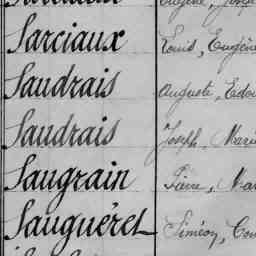 Sarciaux Louis, Eugène
Saudrais Auguste, Edou
Saudrais Joseph, Marie
Saugrain Pierre, Mar
Sauguéret Siméon, Con